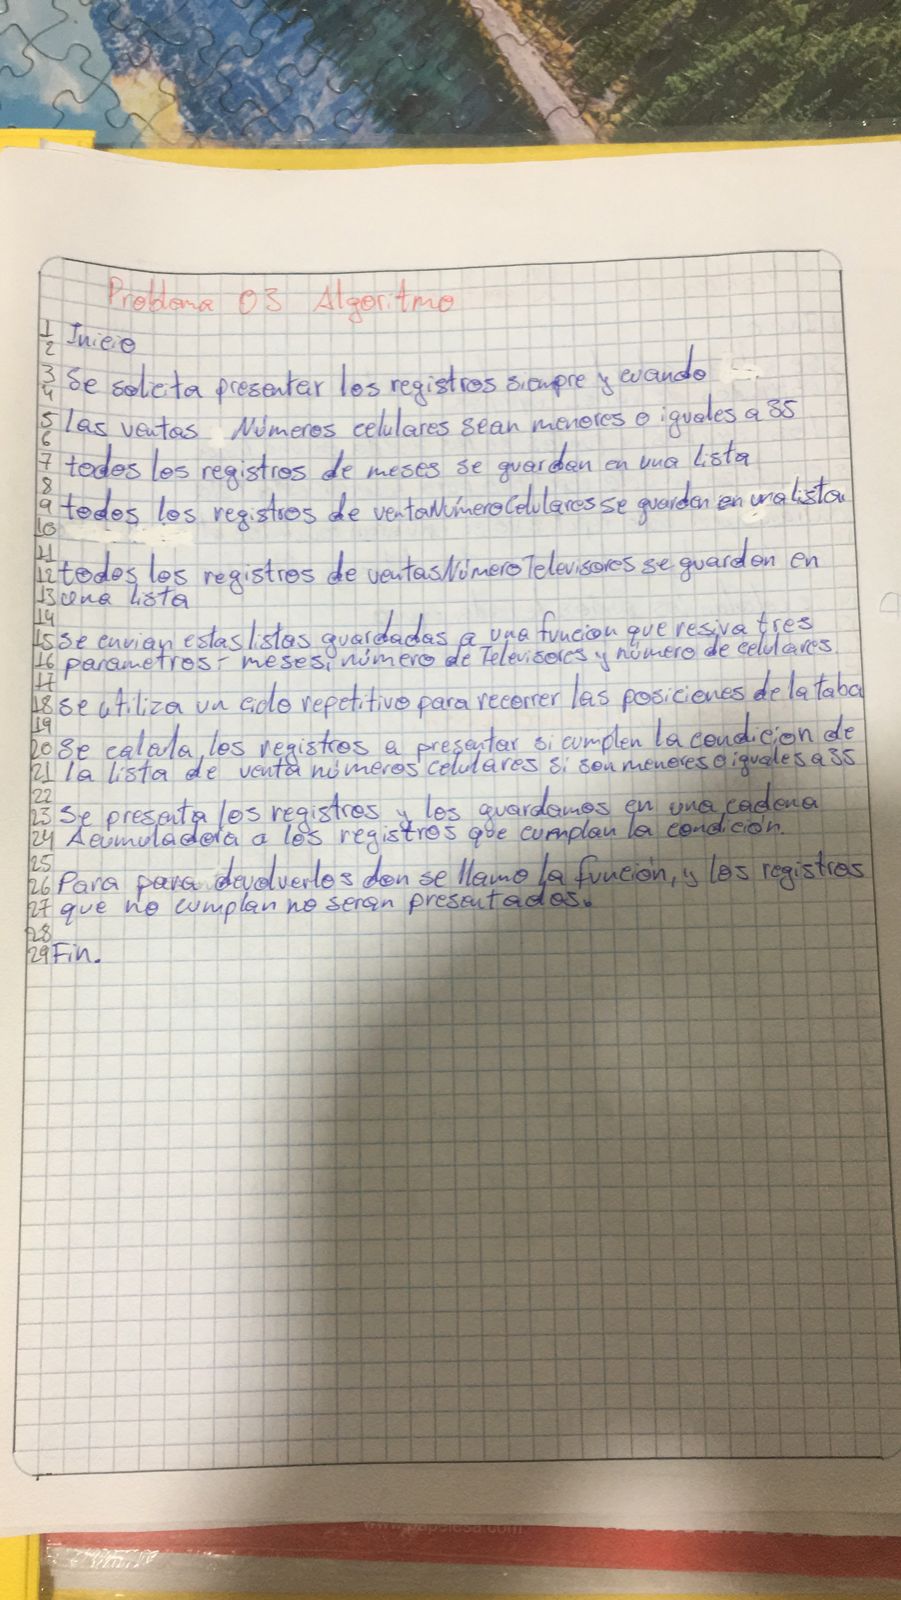 Problema 03 Algoritmo
1
2 Inicio
3
4 Se solicita presentar los registros siempre y cuando
5 las ventas Números celulares sean menores o iguales a 35
6
7 todos los registros de meses se guardan en una lista
8
9 todos los registros de ventaNúmeroCelulares se guardan en una lista
10
11
12 todos los registros de ventasNúmeroTelevisores se guardan en
13 una lista
14
15 se envian estas listas guardadas a una funcion que resiva tres
16 parametros - meses, número de Televisores y número de celulares.
17
18 se utiliza un ciclo repetitivo para recorrer las posiciones de la taba
19
20 Se calcula los registros a presentar si cumplen la condicion de
21 la lista de venta números celulares si son menores o iguales a 35
22
23 Se presenta los registros y los guardamos en una cadena
24 Acumuladora a los registros que cumplan la condición.
25
26 Para para devolverlos don se llamo la función, y los registros
27 que no cumplan no seran presentados.
28
29 Fin.
www.papelesa.com